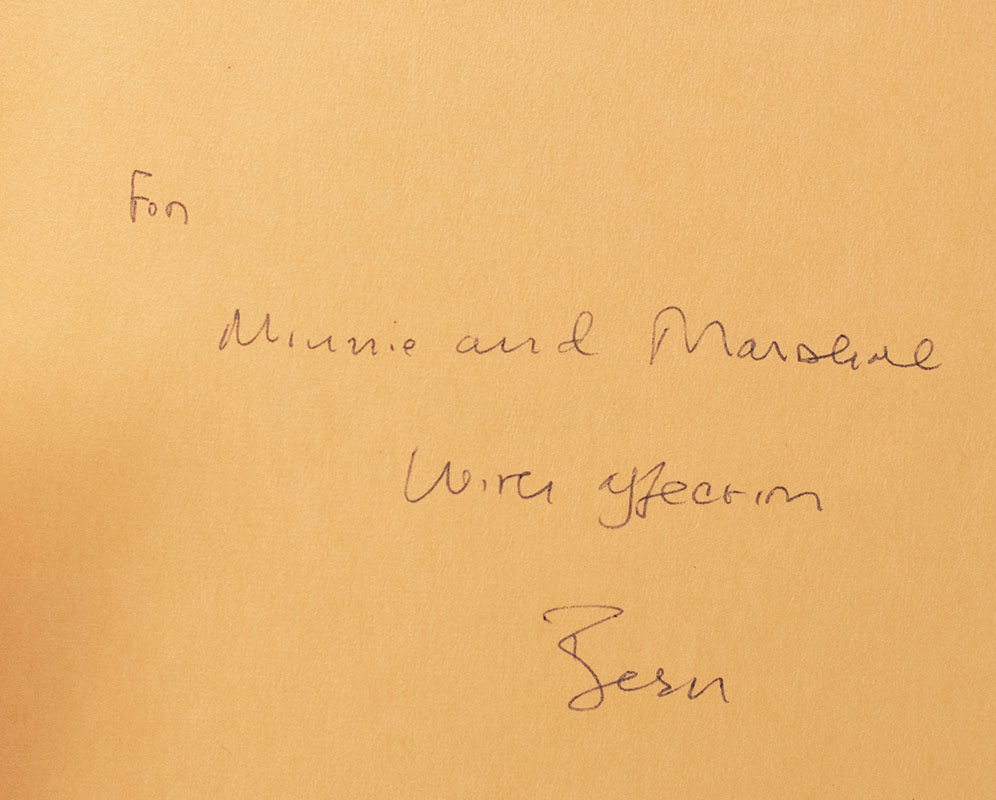 For
Minnie and Marshall
With affection
Bern